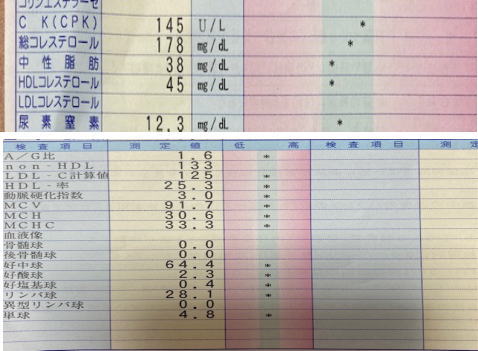 コリンエステラーゼ
C K(CPK) 145 U/L *
総コレステロール 178 mg/dL *
中性脂肪 38 mg/dL *
HDLコレステロール 45 mg/dL *
LDLコレステロール
尿素窒素 12.3 mg/dL *
検査項目 測定値 低 高 検査項目 測定
A/G比 1.6 *
non-HDL 133
LDL-C計算値 125 *
HDL-率 25.3 *
動脈硬化指数 3.0 *
MCV 91.7 *
MCH 30.6 *
MCHC 33.3 *
血液像
骨髄球 0.0
後骨髄球 0.0
好中球 64.4 *
好酸球 2.3 *
好塩基球 0.4 *
リンパ球 28.1 *
異型リンパ球 0.0
単球 4.8 *